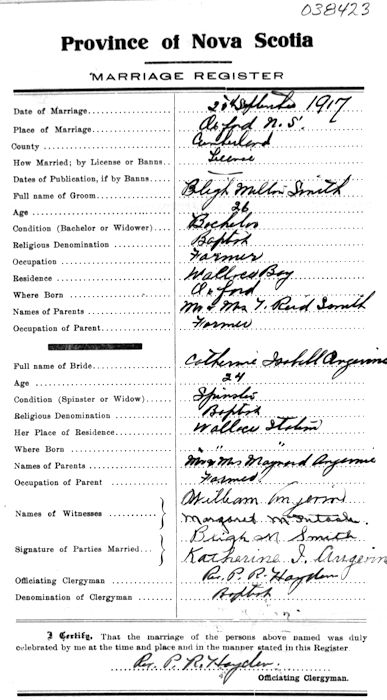 038423
Province of Nova Scotia
MARRIAGE REGISTER
Date of Marriage September 1917
Place of Marriage Oxford N.S.
County Cumberland
How Married; by License or Banns License
Dates of Publication, if by Banns
Full name of Groom Bligh Milton Smith
Age 26
Condition (Bachelor or Widower) Bachelor
Religious Denomination Baptist
Occupation Farmer
Residence Wallace Bay
Where Born Oxford
Names of Parents Mr & Mrs T. Reid Smith
Occupation of Parent Farmer
Full name of Bride Catherine Isabell Angevine
Age 24
Condition (Spinster or Widow) Spinster
Religious Denomination Baptist
Her Place of Residence Wallace Station
Where Born " "
Names of Parents Mr & Mrs Maynard Angevine
Occupation of Parent Farmer
Names of Witnesses William
Margaret McIntosh
Signature of Parties Married Bligh M Smith
Katherine I. Angevine
Officiating Clergyman Rev. P. R. Hayden
Denomination of Clergyman Baptist
I Certify, That the marriage of the persons above named was duly
celebrated by me at the time and place and in the manner stated in this Register.
Rev. P. R. Hayden
Officiating Clergyman.